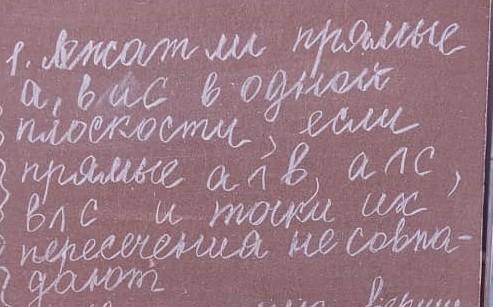 1. Лежат ли прямые
a, b и c в одной
плоскости, если
прямые a ∩ b, a ∩ c,
b ∩ c и точки их
пересечения не совпа-
дают